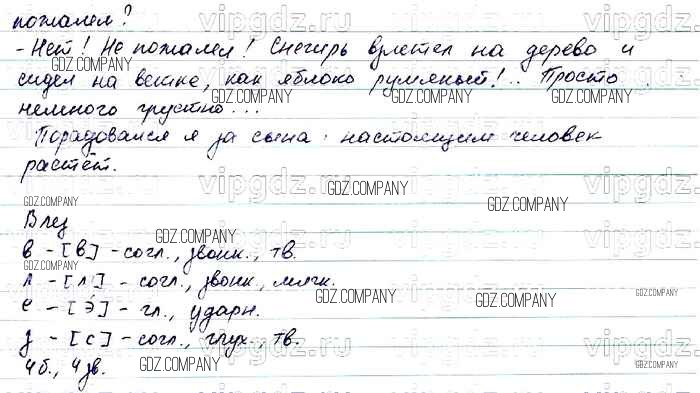 пожалел?
- Нет! Не пожалел! Снегирь взлетел на дерево и
сидел на ветке, как яблоко румяный!.. Просто
немного грустно...
Порадовался я за сына: настоящим человек
растёт.
Влез
в - [в] - согл., звонк., тв.
л - [л'] - согл., звонк., мягк.
е - [э́] - гл., ударн.
з - [с] - согл., глух., тв.
4б., 4зв.